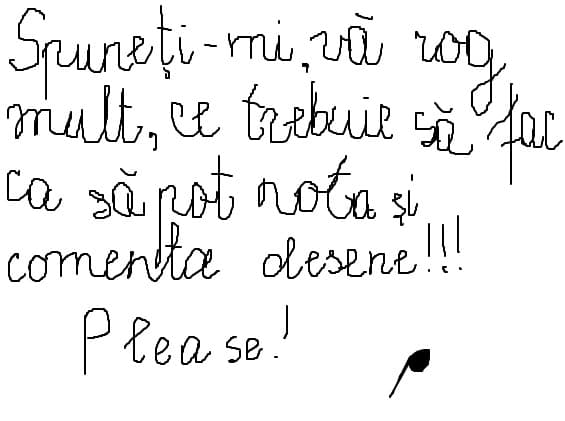 Spuneți-mi, vă rog
mult, ce trebuie să fac
ca să pot nota și
comenta desene!!!
Please!